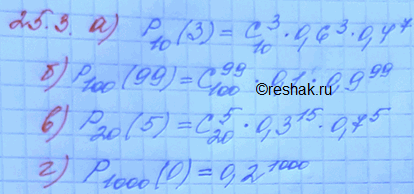 25.3. а) P₁₀(3) = C³₁₀ · 0,6³ · 0,4⁷
б) P₁₀₀(99) = C⁹⁹₁₀₀ · 0,1 · 0,9⁹⁹
©reshak.ru
в) P₂₀(5) = C⁵₂₀ · 0,3¹⁵ · 0,7⁵
г) P₁₀₀₀(0) = 0,2¹⁰⁰⁰